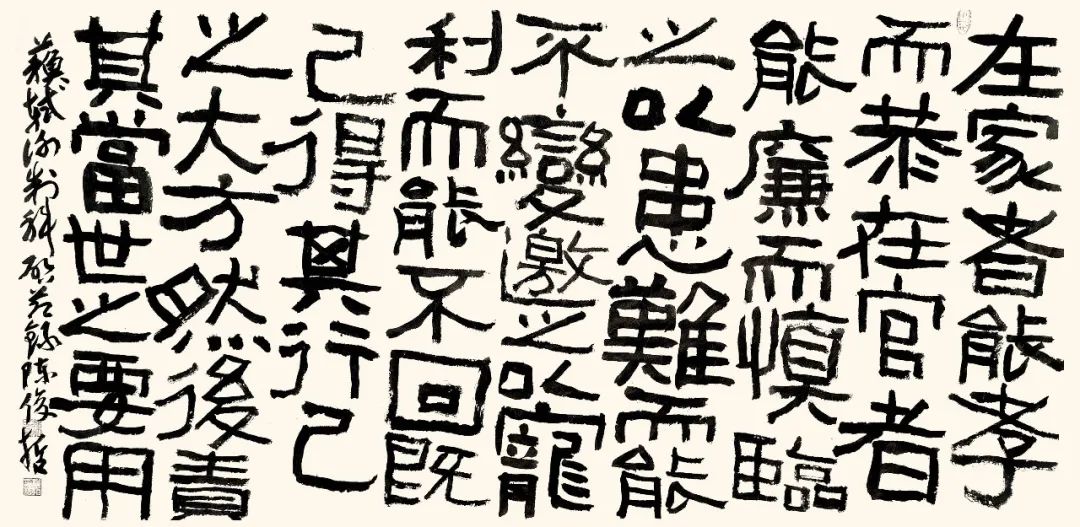 在家者能孝
而恭在官者
能廉而慎臨
之以患難而能
不變邀之以寵
利而能不回既
己得其行己
之大方然後責
其當世之要用
蘇軾謝制科啟節錄陳俊哲